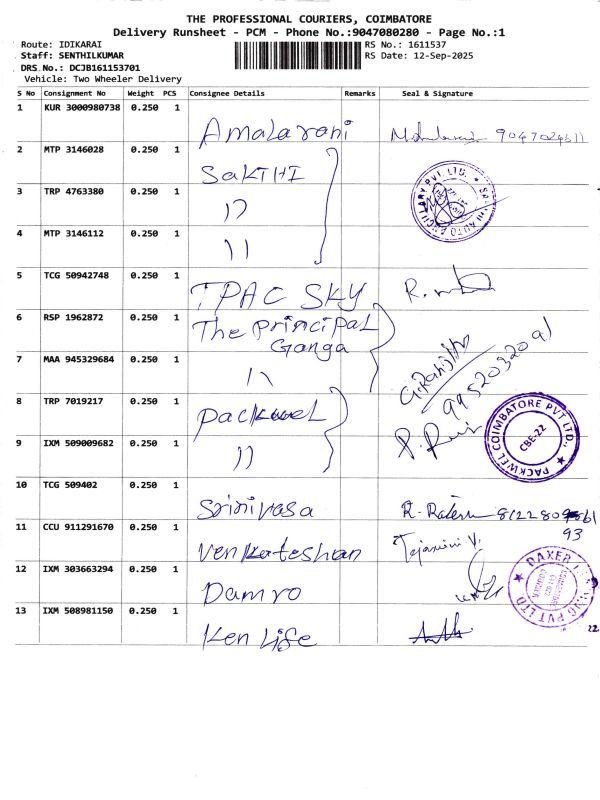 THE PROFESSIONAL COURIERS, COIMBATORE
Delivery Runsheet - PCM - Phone No.:9047080280 - Page No.:1
Route: IDIKARAI
RS No.: 1611537
Staff: SENTHILKUMAR
RS Date: 12-Sep-2025
DRS No.: DCJB161153701
Vehicle: Two Wheeler Delivery
S No Consignment No Weight PCS Consignee Details Remarks Seal & Signature
1 KUR 3000980738 0.250 1 Amalarani
2 MTP 3146028 0.250 1 SAKTHI
3 TRP 4763380 0.250 1 ''
4 MTP 3146112 0.250 1 ''
5 TCG 50942748 0.250 1 TPAC SKY
6 RSP 1962872 0.250 1 The principal
Ganga
7 MAA 945329684 0.250 1 ''
9952032091
8 TRP 7019217 0.250 1 packwel
PACKWEL COIMBATORE PVT LTD.,
CBE-22
9 IXM 509009682 0.250 1 ''
10 TCG 509402 0.250 1 Srinivasa
93
11 CCU 911291670 0.250 1 Venkateshan Tejasvini V.
12 IXM 303663294 0.250 1 Damro
13 IXM 508981150 0.250 1 Ken Life
22.